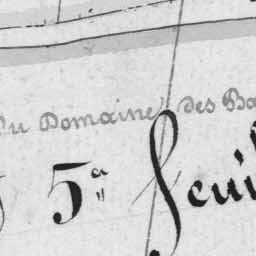 Du Domaine des Ba
5ª Feuil